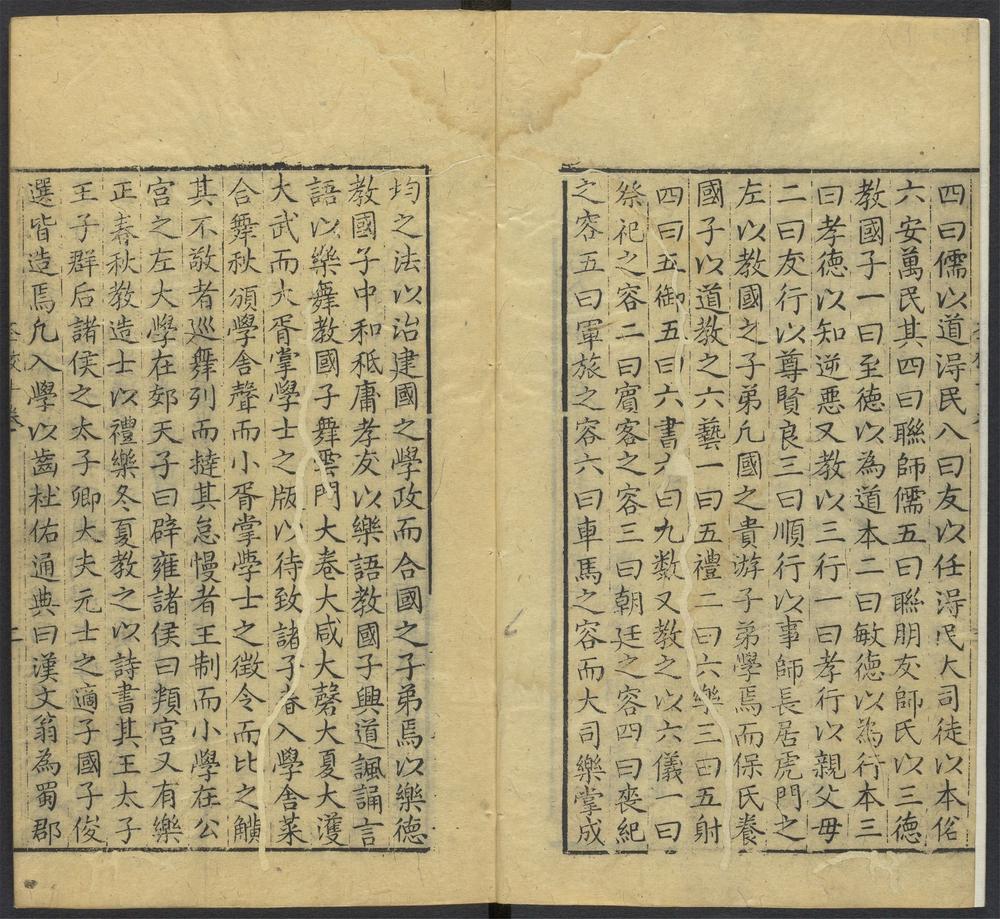 四曰儒以道得民八曰友以任得民大司徒以本俗
六安萬民其四曰聯師儒五曰聯朋友師氏以三德
教國子一曰至德以為道本二曰敏德以為行本三
曰孝德以知逆惡又教以三行一曰孝行以親父母
二曰友行以尊賢良三曰順行以事師長居虎門之
左以教國之子弟凢國之貴游子弟學焉而保氏養
國子以道教之六藝一曰五禮二曰六樂三曰五射
四曰五御五曰六書六曰九数又教之以六儀一曰
祭祀之容二曰賓客之容三曰朝廷之容四曰喪紀
之容五曰軍旅之容六曰車馬之容而大司樂掌成
均之法以治建國之學政而合國之子弟焉以樂德
教國子中和秪庸孝友以樂語教國子興道諷誦言
語以樂舞教國子舞雲門大卷大咸大磬大夏大濩
大武而大胥掌學士之版以待致諸子春入學舍菜
合舞秋頒學舍聲而小胥掌學士之徵令而比之觵
其不敬者巡舞列而撻其怠慢者王制而小學在公
宫之左大學在郊天子曰辟雍諸侯曰頖宫又有樂
正春秋教造士以禮樂冬夏教之以詩書其王太子
王子群后諸侯之太子卿大夫元士之適子國子俊
選皆造焉凢入學以齒杜佑通典曰漢文翁為蜀郡